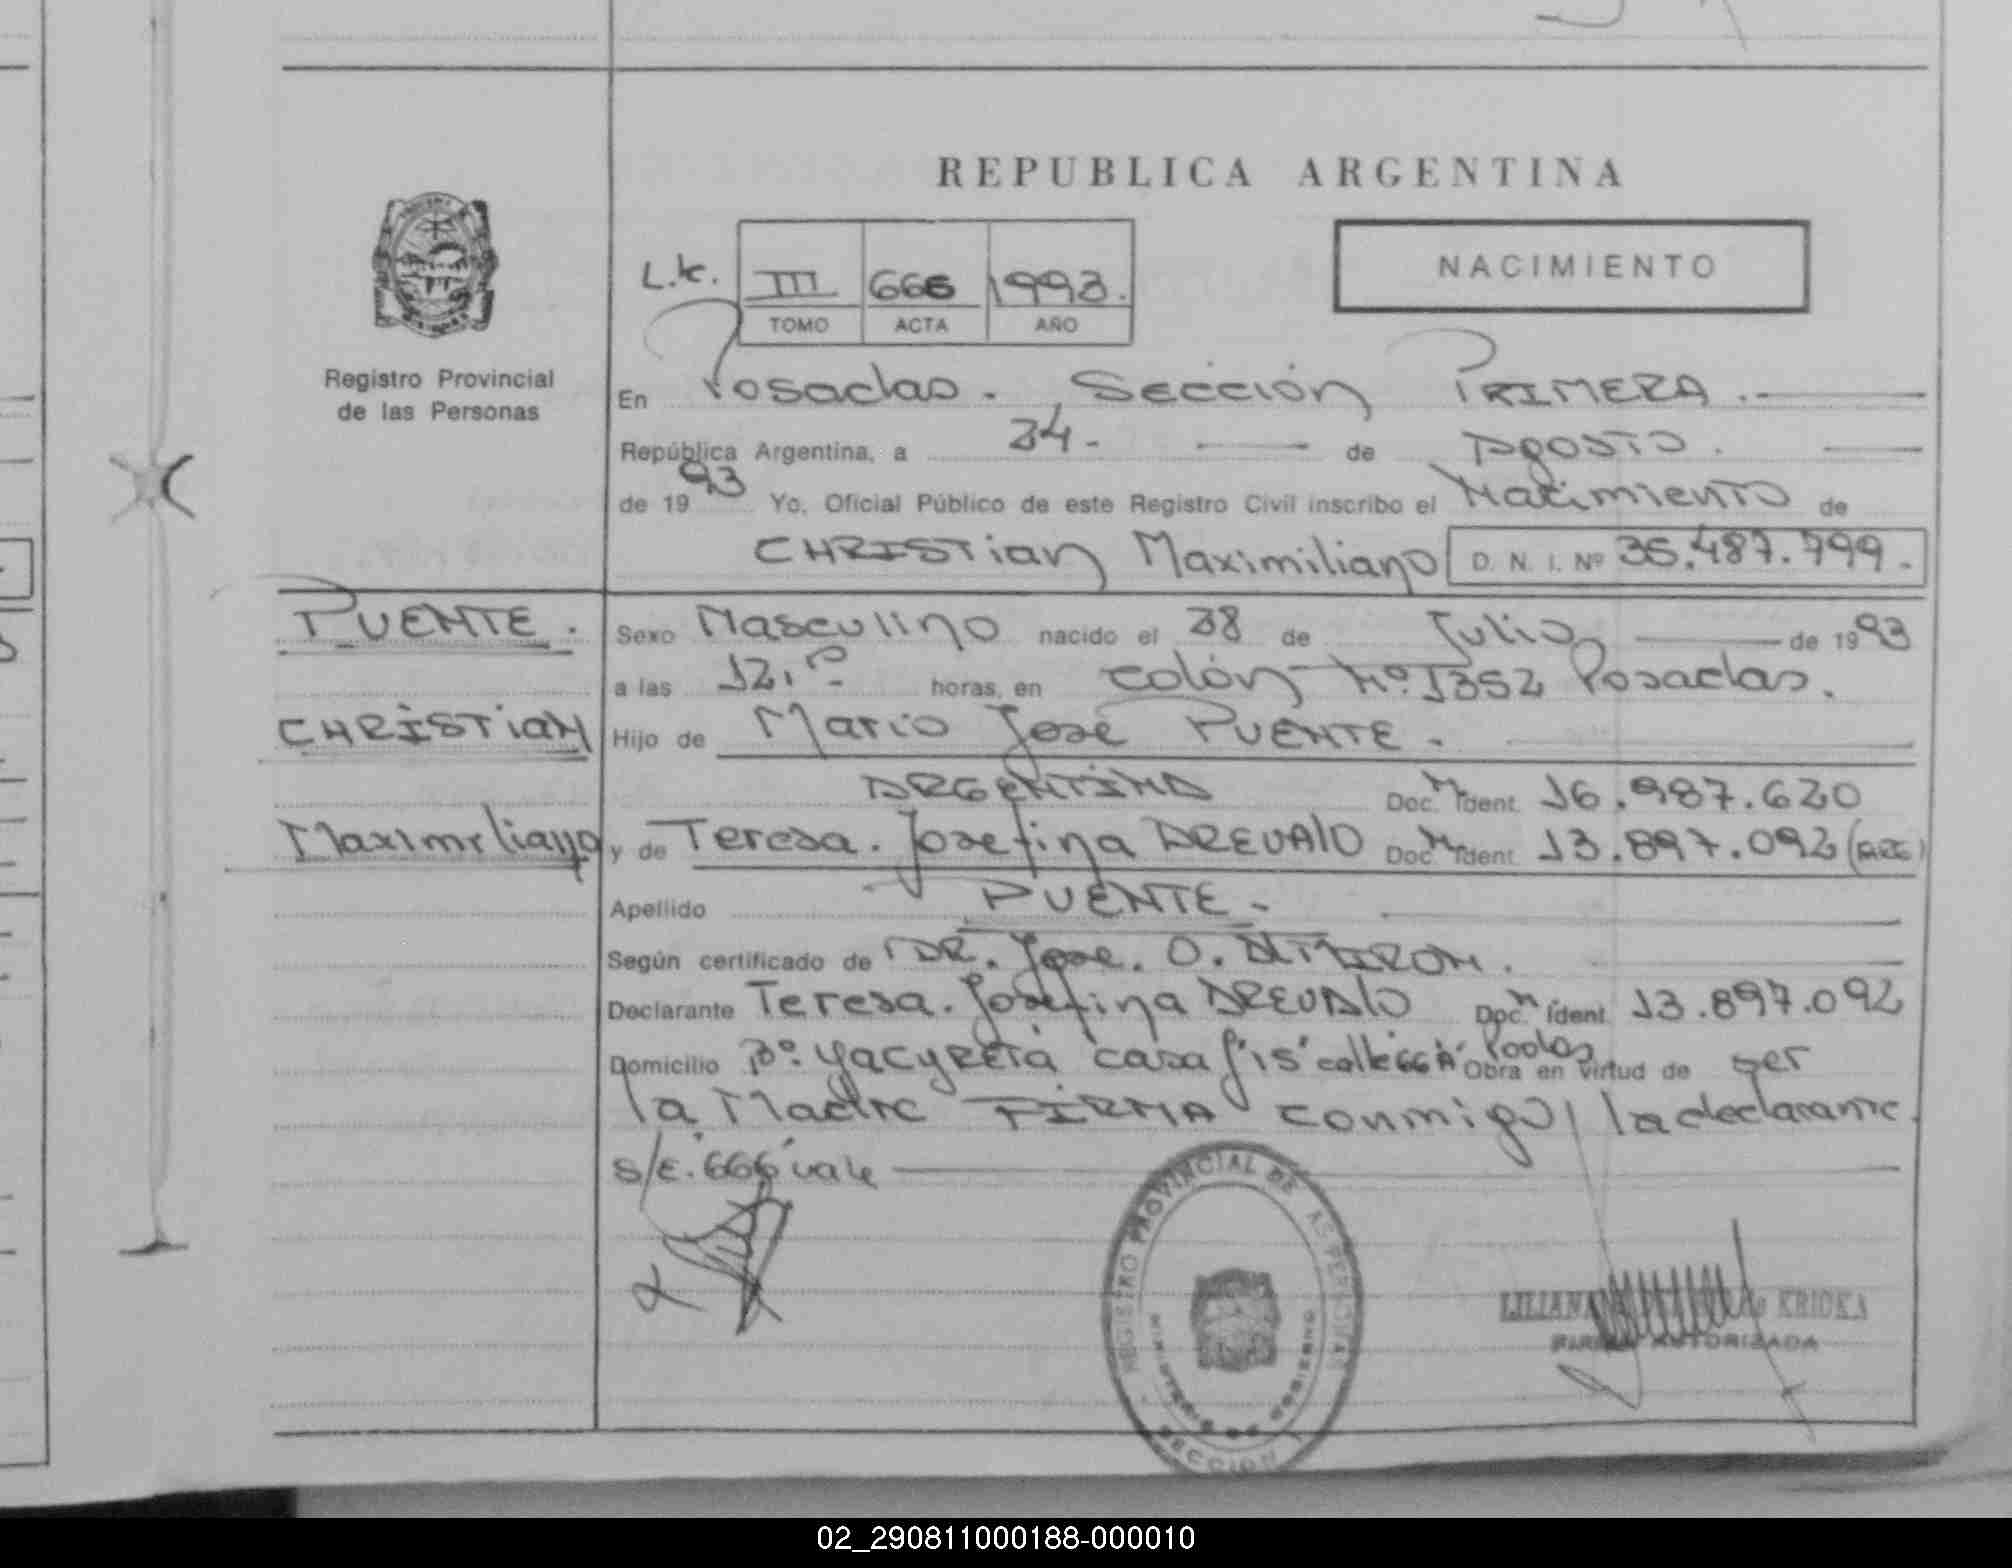 REPUBLICA ARGENTINA
NACIMIENTO
L.c. III 666 1993.
TOMO ACTA AÑO
Registro Provincial
de las Personas
En Posadas. Sección PRIMERA.
República Argentina, a 24.- de Agosto.
de 1993 Yo, Oficial Público de este Registro Civil inscribo el Nacimiento de
CHRISTian Maximiliano D. N. I. Nº 36.487.799.
PUENTE.
CHRISTIAN
Maximiliano
Sexo Masculino nacido el 28 de Julio de 1993
a las 12, horas, en Colón Nº 1352 Posadas.
Hijo de Mario José PUENTE.
ARGENTINA Doc. Ident. 16.987.620
y de Teresa. Josefina AREVALO Doc. Ident. 13.897.092 (ARG)
Apellido PUENTE.-
Según certificado de DR. Jose. O.
Declarante Teresa. Josefina AREVALO Doc. Ident. 13.897.092
Domicilio Bº. YACYRETA casa calle 66 A Obra en virtud de ser
la Madre FIRMA conmigo la declarante.
s/E. "666" vale
REGISTRO PROVINCIAL DE LAS PERSONAS
MINISTERIO DE GOBIERNO
SECCION 1
LILIANA KRIOKA
FIRMA AUTORIZADA
02_290811000188-000010